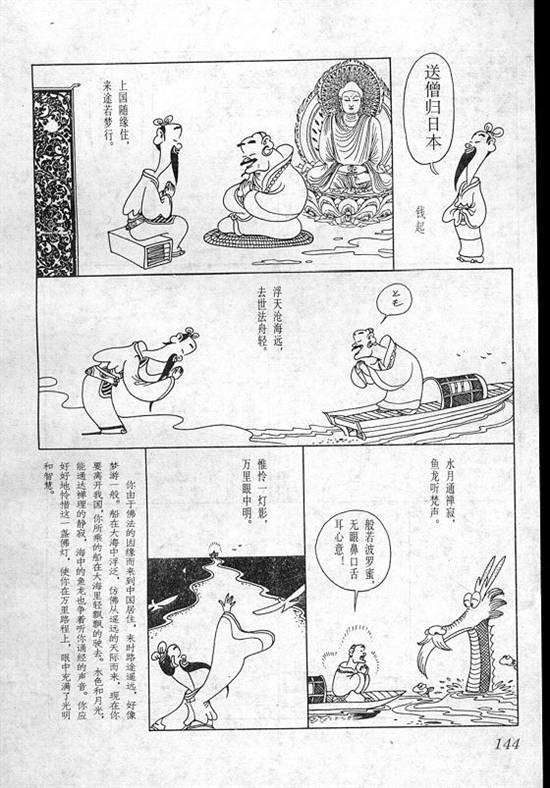 送僧归日本
钱起
上国随缘住，
来途若梦行。
浮天沧海远，
去世法舟轻。
水月通禅寂，
鱼龙听梵声。
般若波罗蜜，
无眼鼻口舌
耳心意！
惟怜一灯影，
万里眼中明。
你由于佛法的因缘而来到中国居住，来时路途遥远，好像
梦游一般。船在大海中浮泛，仿佛从遥远的天际而来，现在你
要离开我国，你所乘的船在大海里轻飘飘的驶去。水色和月光，
能通达禅理的静寂，海中的鱼龙也争着听你诵经的声音。你应
好好地怜惜这一盏佛灯，使你在万里路程上，眼中充满了光明
和智慧。
144